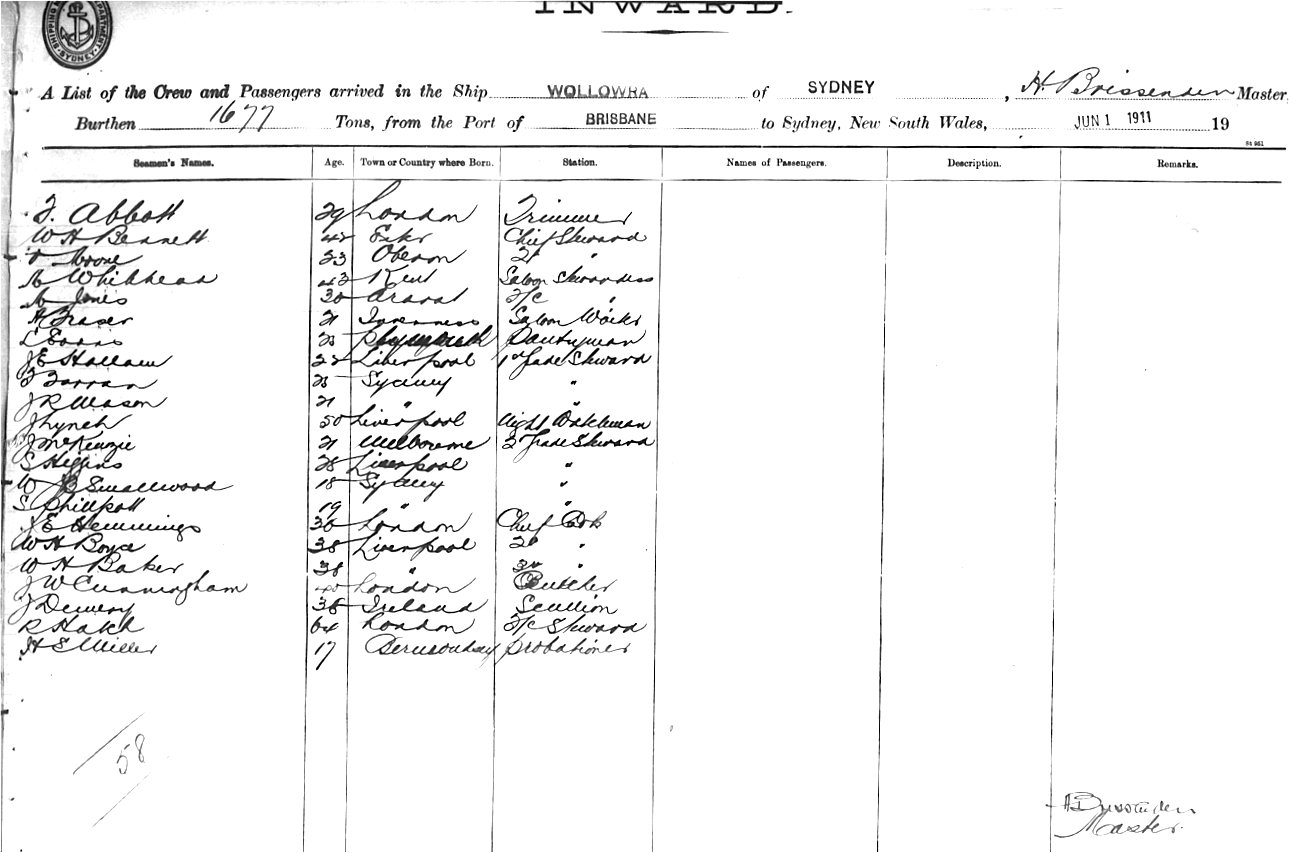 INWARD.
SHIPPING DEPARTMENT SYDNEY
A List of the Crew and Passengers arrived in the Ship WOLLOWRA of SYDNEY, H. Brissenden Master
Burthen 1677 Tons, from the Port of BRISBANE to Sydney, New South Wales, JUN 1 1911 19
Seamen's Names. Age. Town or Country where Born. Station. Names of Passengers. Description. Remarks.
Abbott 29 London Trimmer
W H Bennett 42 Chief Steward
Moore 23 Oberon 2d "
Whitehead 43 Kent Saloon Stewardess
Jones 30 Ararat 2/c "
A Fraser 21 Inverness Saloon Waiter
L Evans 23 Pantryman
J E Hallam 22 Liverpool Steward
Farran 23 Sydney "
J R Mason 21 " "
J Lynch 50 Liverpool Night Watchman
J McKenzie 21 Melbourne Steward
S Higgins 28 Liverpool "
W B Smallwood 18 Sydney "
S Phillpott 19 " "
E Hemmings 36 London Chief Cook
W H Boyce 38 Liverpool 2d "
W H Baker 38 " 3d "
J W Cunningham London Butcher
J 36 Ireland Scullion
R 64 London 2/c Steward
H E Miller 17 Bermondsey Probationer
58
H Brissenden
Master.